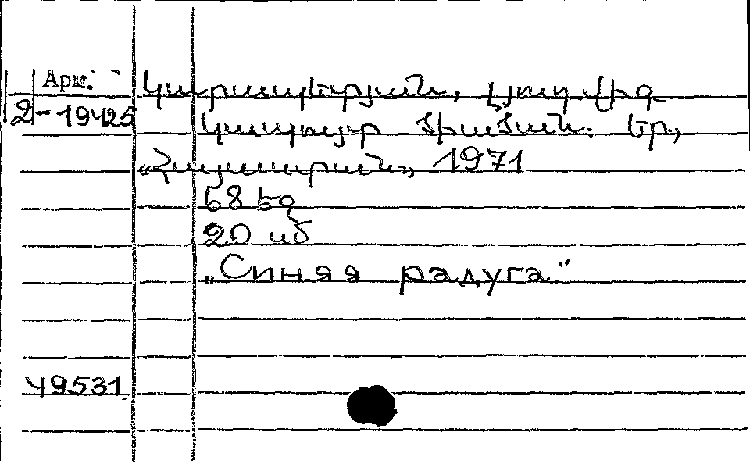 Арм.
2-19425
Կարապետյան, Լյուդվիգ
Կապույտ ծիածան: Եր,
«Հայաստան», 1971
68 էջ
20 սմ
„Синяя радуга"
49531